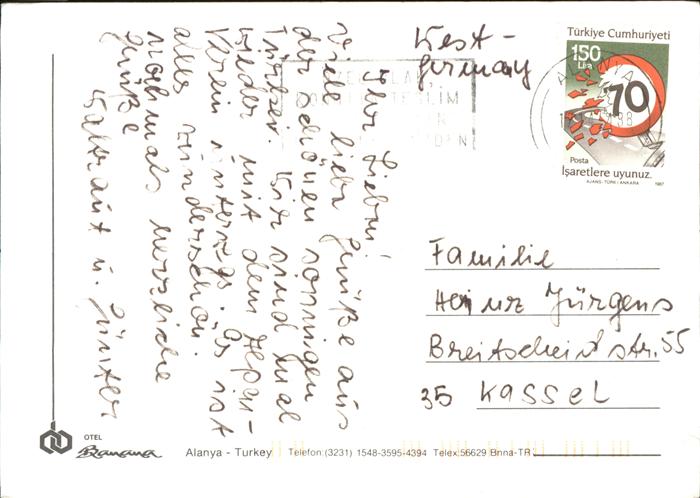 Ihr Lieben!
Viele liebe Grüße aus
der schönen sonnigen
Türkei. Wir sind mal
wieder mit dem Alpen-
Verein unterwegs. Es ist
alles wunderschön.
nochmals herzliche
Grüße
Waltraut u. Günter
West-
germany
Türkiye Cumhuriyeti
150
Lira
70
Posta
İşaretlere uyunuz.
AJANS-TÜRK / ANKARA 1987
ALANYA
TESLİM
Familie
Heinz Jürgens
Breitscheidstr. 55
35 Kassel
OTEL
Banana
Alanya - Turkey Telefon:(3231) 1548-3595-4394 Telex:56629 Bnna-TR